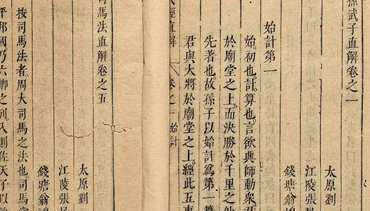 孫武子直解卷之一
太原劉
江陵張
錢塘翁
始計第一
始初也計算也言欲興師動眾
於廟堂之上而決勝於千里之外
先著也故孫子以始計為第一篇
君與大將於廟堂之上經此五事
經直解 卷之一 始計
司馬法直解卷之五
太原劉
江陵張居
錢塘翁
按司馬法者周大司馬之法也司馬
平邦國乃六卿之列入則佐天子以